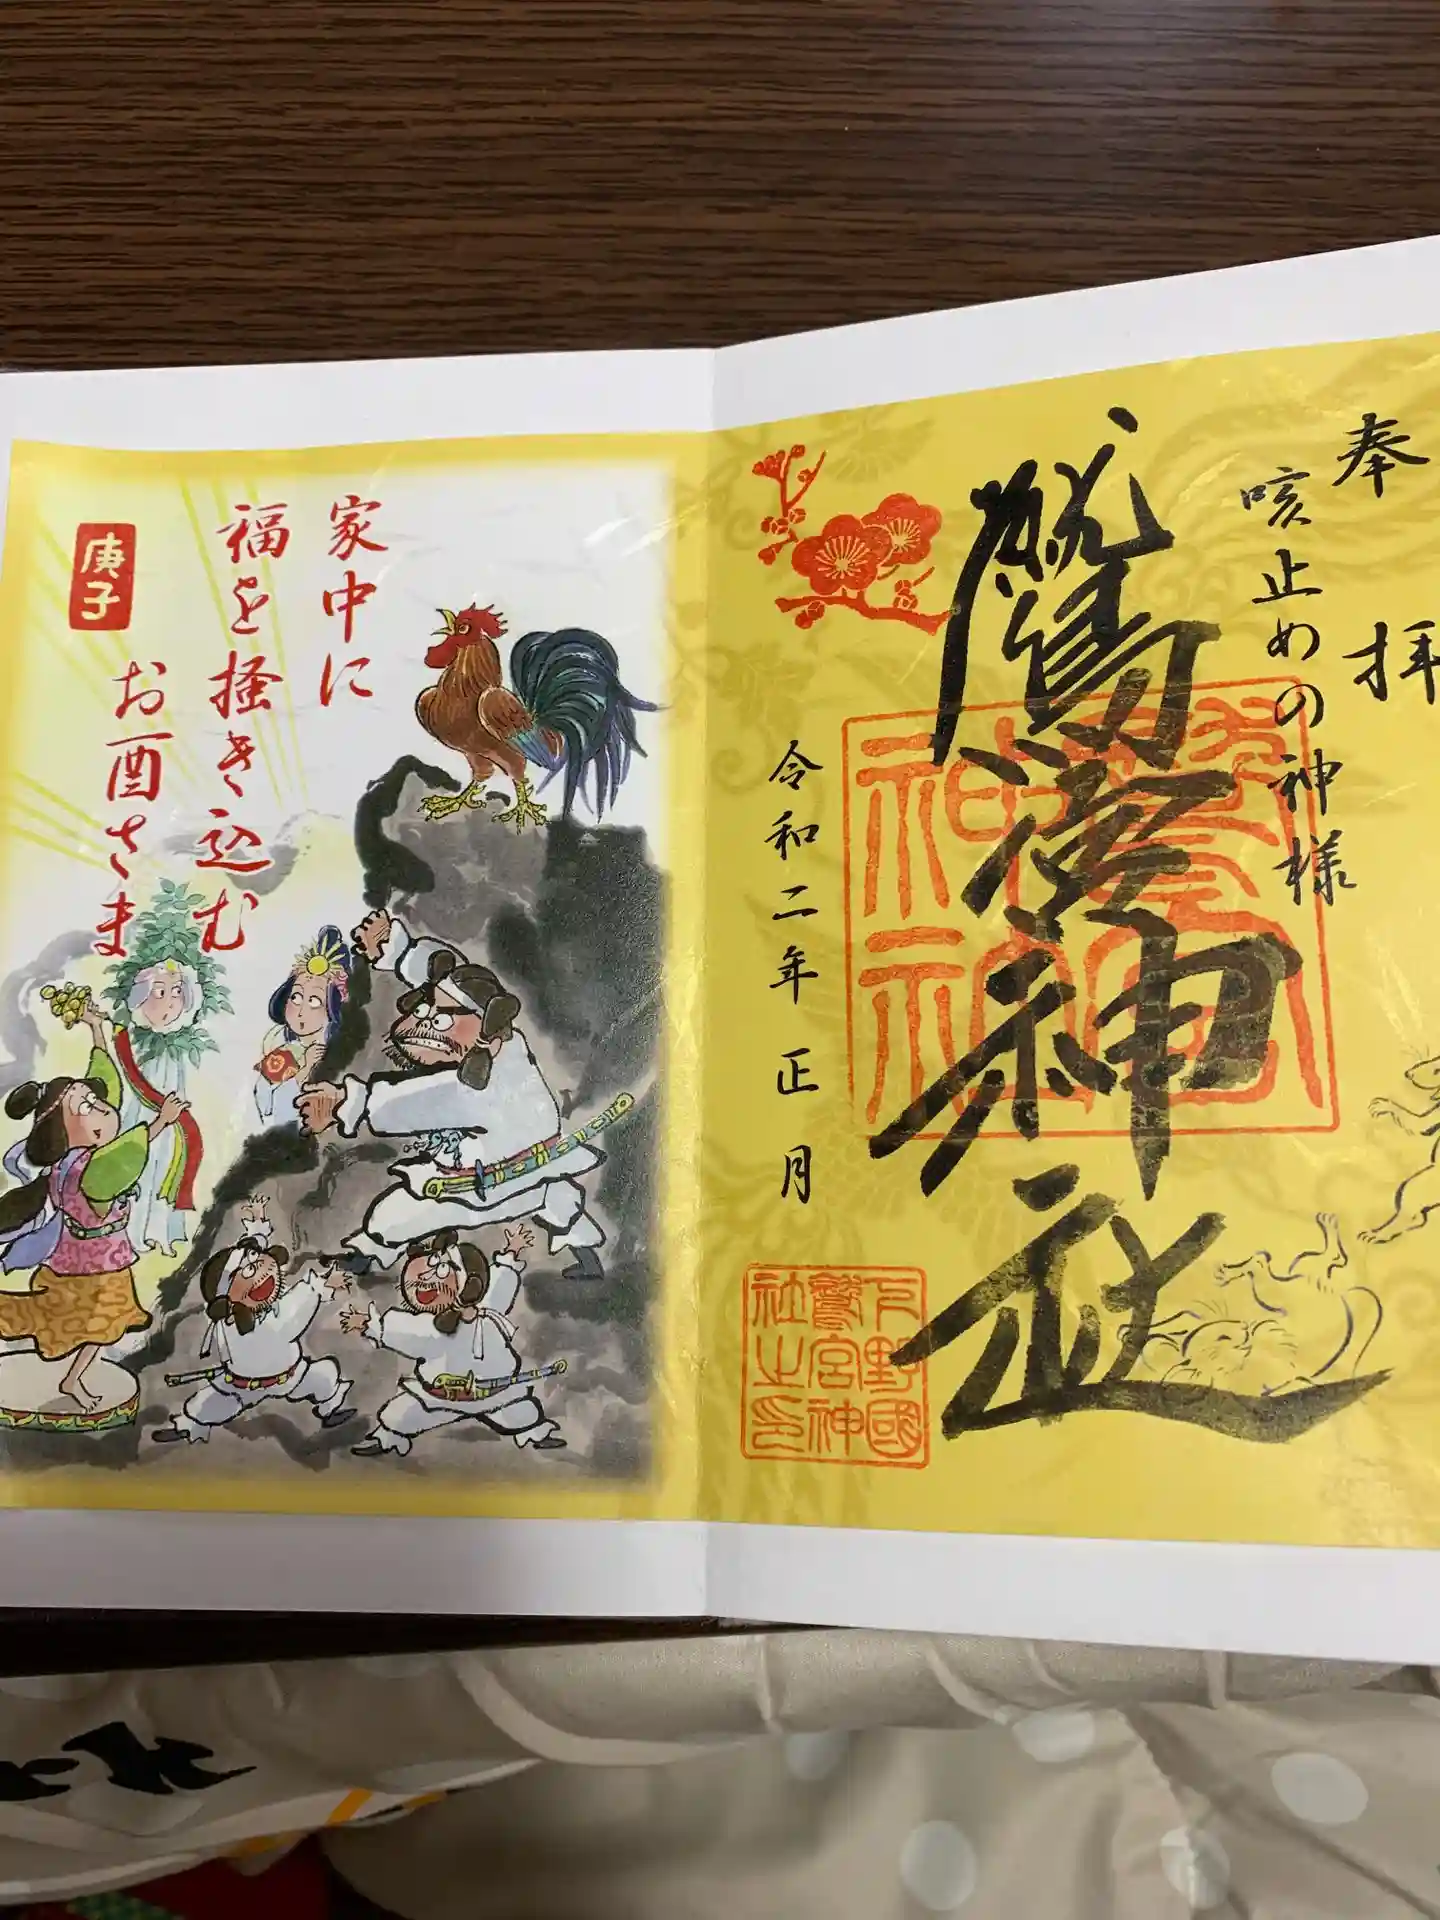 奉拝
咳止めの神様
鷲宮神社
鷲宮
神社
令和二年正月
下野國
鷲宮神
社之印
家中に
福を掻き込む
お酉さま
庚子